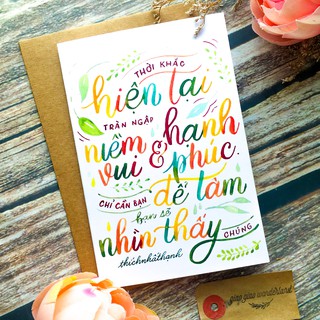 THỜI KHẮC
hiện tại
TRÀN NGẬP
niềm hạnh
vui & phúc
CHỈ CẦN BẠN để tâm
bạn sẽ
nhìn thấy
CHÚNG
thichnhathanh